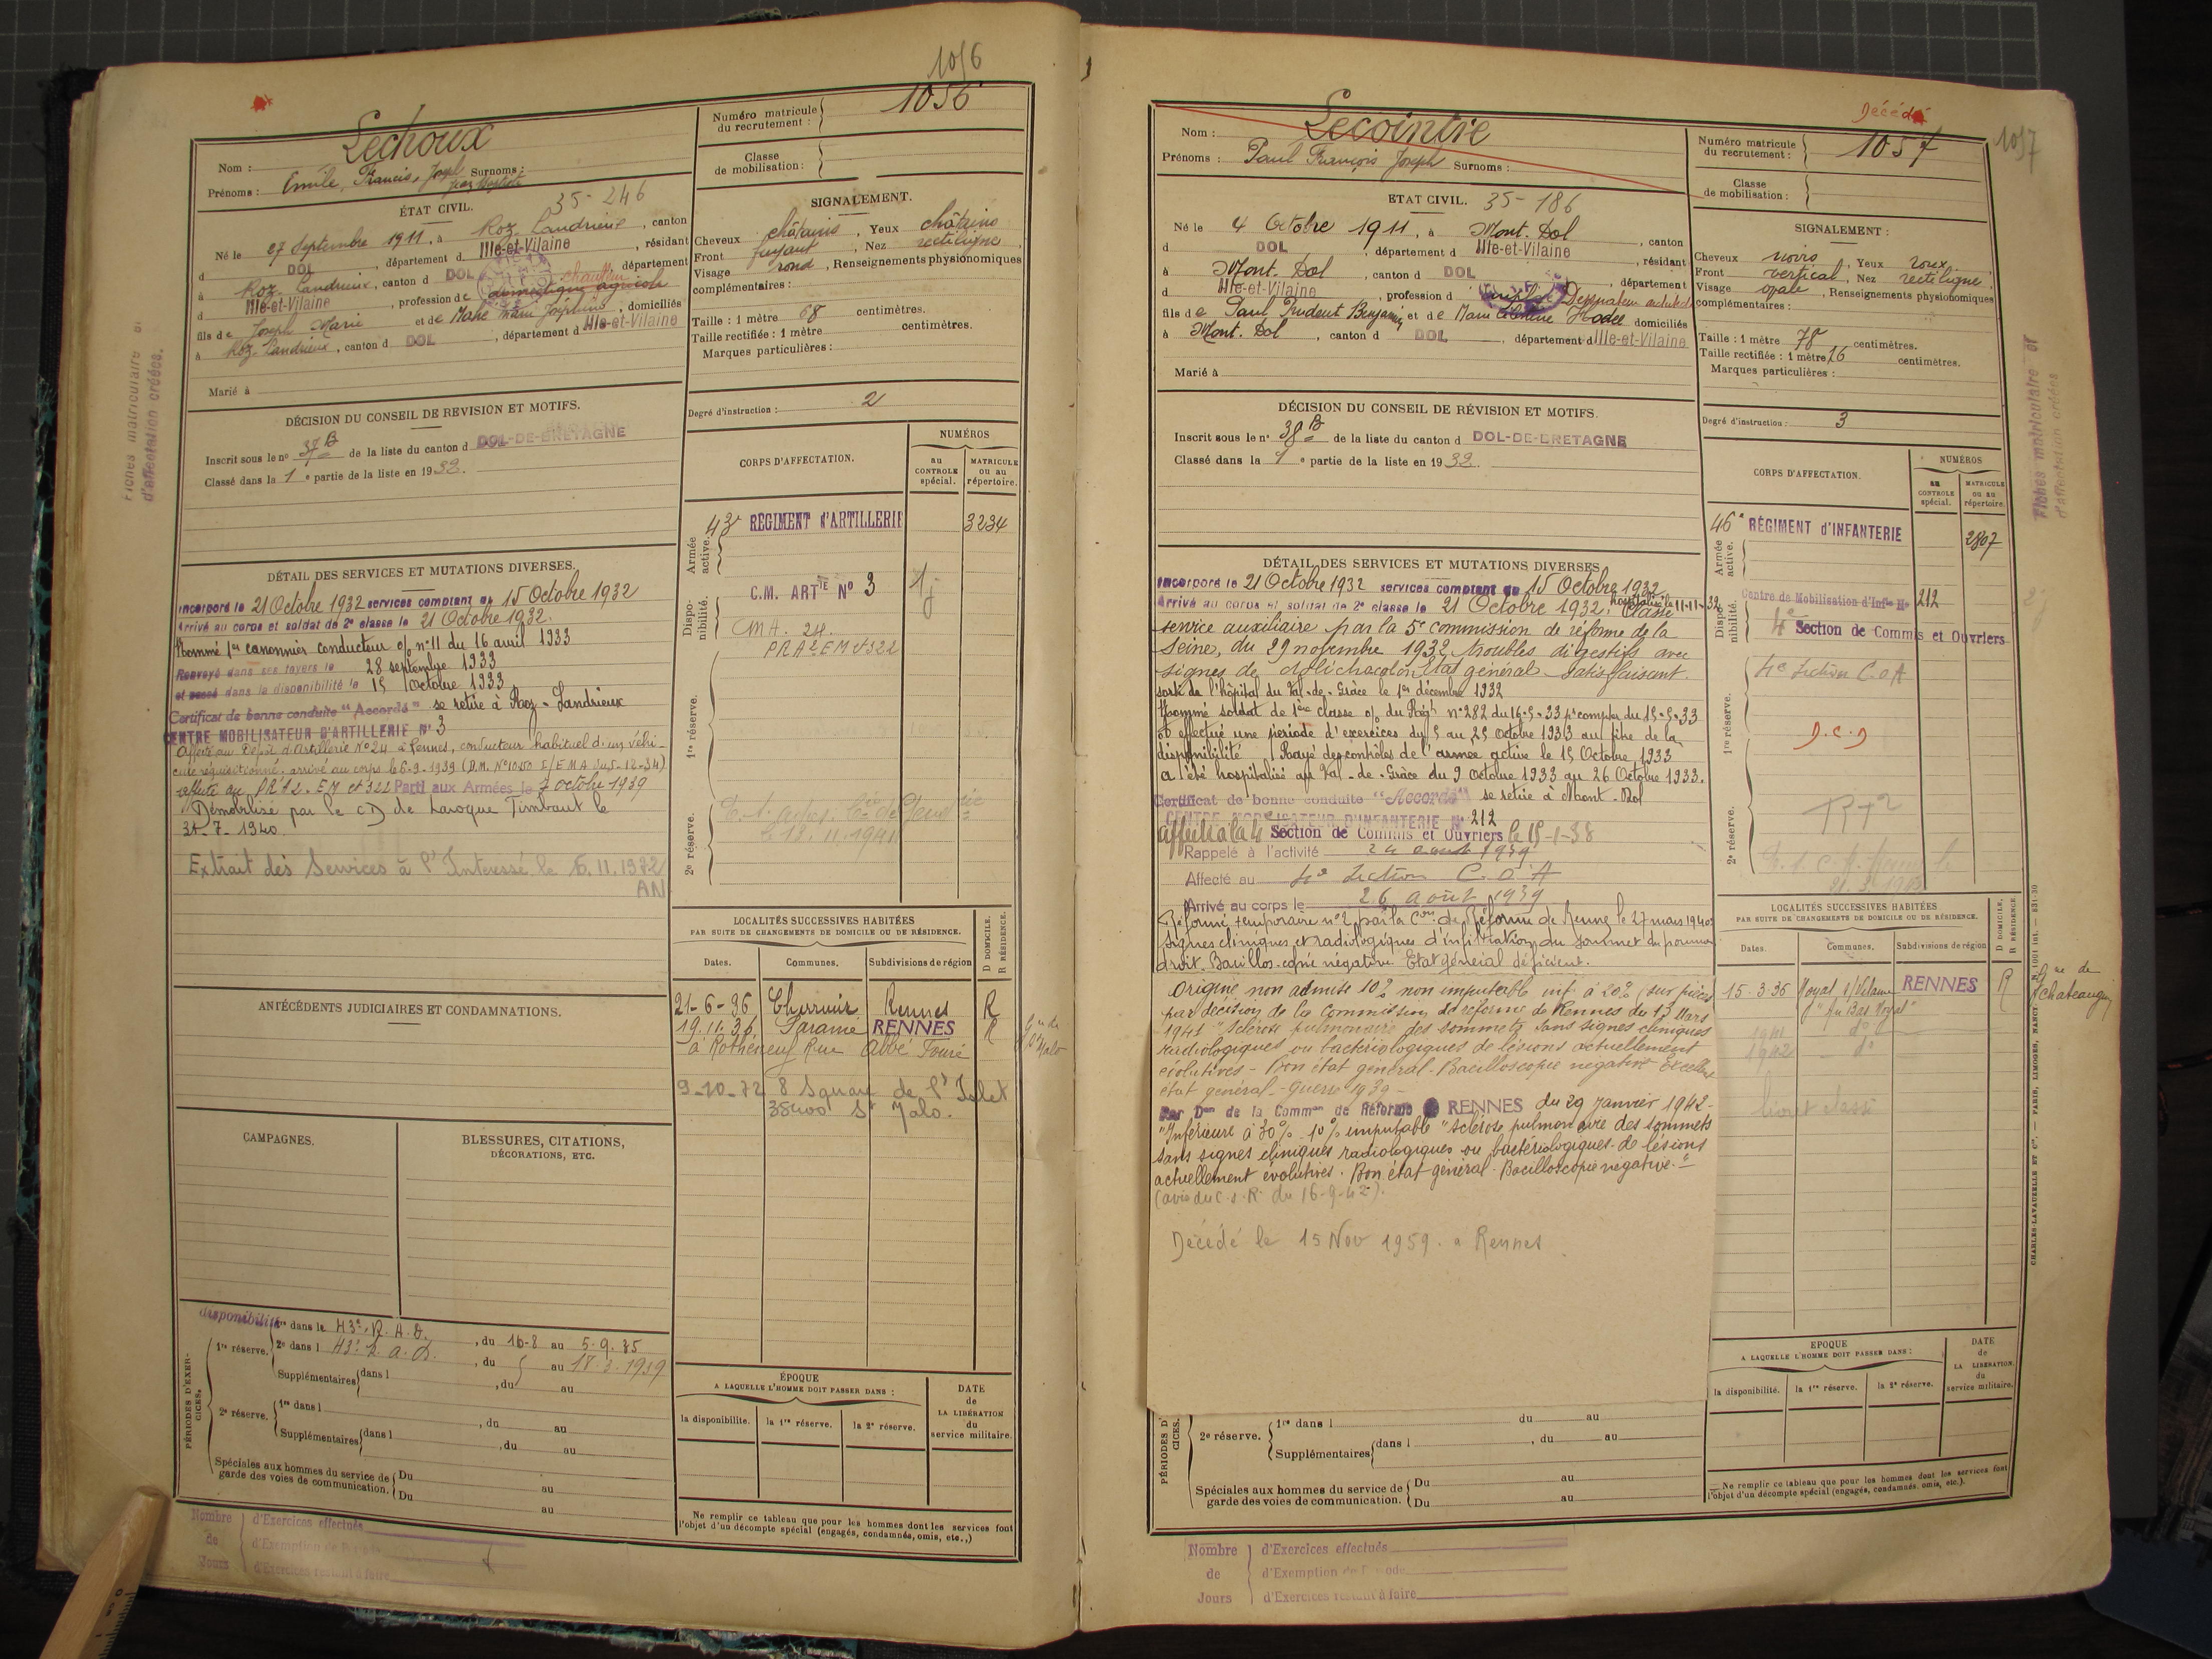 1056
Lechoux
Nom :
Prénoms : Emile, Francis, Joseph Surnoms :
Jean Baptiste
35-246
ÉTAT CIVIL.
Né le 27 Septembre 1911, à Roz-Landrieux, canton
d DOL, département d Ille-et-Vilaine, résidant
à Roz-Landrieux, canton d DOL département
d Ille-et-Vilaine, profession de domestique agricole
chauffeur
fils de Joseph Marie et de Mahé Marie Joséphine, domiciliés
à Roz-Landrieux, canton d DOL, département d Ille-et-Vilaine
Marié à
DÉCISION DU CONSEIL DE REVISION ET MOTIFS.
Inscrit sous le n° 37 B de la liste du canton d DOL-DE-BRETAGNE
Classé dans la 1e partie de la liste en 1932.
DÉTAIL DES SERVICES ET MUTATIONS DIVERSES.
Incorporé le 21 Octobre 1932 services comptent du 15 Octobre 1932
Arrivé au corps et soldat de 2e classe le 21 Octobre 1932.
Nommé 1er canonnier conducteur o/ n° 11 du 16 avril 1933
Renvoyé dans ses foyers le 28 septembre 1933
et passé dans la disponibilité le 15 Octobre 1933
Certificat de bonne conduite "Accordé" se retire à Roz-Landrieux
CENTRE MOBILISATEUR D'ARTILLERIE N° 3
Affecté au Dépôt d'Artillerie N° 24 à Rennes, conducteur habituel d'un véhi-
cule réquisitionné. arrivé au corps le 6-9-1939 (D.M. N° 10850 I/EMA du 5-12-34)
affecté au PRA2. EM et 322 Parti aux Armées le 7 octobre 1939
Démobilisé par le CD de Laroque Timbaut le
31-7-1940.
Extrait des Services à l'Intéressé le 6.11.1972
AN
ANTÉCÉDENTS JUDICIAIRES ET CONDAMNATIONS.
CAMPAGNES.
BLESSURES, CITATIONS,
DÉCORATIONS, ETC.
disponibilité
PÉRIODES D'EXER-
CICES.
1re réserve.
1re dans le 43e R.A.D., du 16-8 au 5.9.35
2e dans l 43e R.A.D., du au 18.3.1939
Supplémentaires dans l , du au
2e réserve.
1re dans l , du au
Supplémentaires dans l , du au
Spéciales aux hommes du service de Du au
garde des voies de communication. Du au
Nombre
de
Jours
d'Exercices effectués
d'Exemption de Période
d'Exercices restant à faire
Numéro matricule
du recrutement : 1056
Classe
de mobilisation :
SIGNALEMENT.
Cheveux châtains, Yeux châtains
Front fuyant, Nez rectiligne,
Visage rond, Renseignements physionomiques
complémentaires :
Taille : 1 mètre 68 centimètres.
Taille rectifiée : 1 mètre centimètres.
Marques particulières :
Degré d'instruction : 2
CORPS D'AFFECTATION.
NUMÉROS
au
CONTROLE
spécial.
MATRICULE
ou au
répertoire.
Armée
active.
43e RÉGIMENT D'ARTILLERIE 3234
Dispo-
nibilité.
C.M. ARTIE N° 3
CMA. 24.
PRA2 EM et 322
1re réserve.
2e réserve.
LOCALITÉS SUCCESSIVES HABITÉES
PAR SUITE DE CHANGEMENTS DE DOMICILE OU DE RÉSIDENCE.
D DOMICILE.
R RÉSIDENCE.
Dates. Communes. Subdivisions de région
21-6-36 Cherrueix Rennes R
19.11.36 Paramé RENNES R
à Rothéneuf Rue Abbé Fouré
9-10-72 8 Square de l'Islet
35400 St Malo.
ÉPOQUE
A LAQUELLE L'HOMME DOIT PASSER DANS :
la disponibilité. la 1re réserve. la 2e réserve.
DATE
de
LA LIBÉRATION
du
service militaire.
Ne remplir ce tableau que pour les hommes dont les services font
l'objet d'un décompte spécial (engagés, condamnés, omis, etc.,)
Fiches matriculaire et
d'affectation créées.
Décédé
1057
Lecointre
Nom :
Prénoms : Paul François Joseph Surnoms :
ETAT CIVIL. 35-186
Né le 4 Octobre 1911, à Mont-Dol, canton
d DOL, département d Ille-et-Vilaine, résidant
à Mont-Dol, canton d DOL, département
d Ille-et-Vilaine, profession d
fils de Paul, Prudent Benjamin et de Marie Hodée domiciliés
à Mont-Dol, canton d DOL, département d Ille-et-Vilaine
Marié à
DÉCISION DU CONSEIL DE RÉVISION ET MOTIFS.
Inscrit sous le n° 38 B de la liste du canton d DOL-DE-BRETAGNE
Classé dans la 1e partie de la liste en 1932.
DÉTAIL DES SERVICES ET MUTATIONS DIVERSES
Incorporé le 21 Octobre 1932 services comptent du 15 Octobre 1932
Arrivé au corps et soldat de 2e classe le 21 Octobre 1932. hospitalisé le 11-11-32 Classé
service auxiliaire par la 5e commission de réforme de la
Seine, du 29 novembre 1932 troubles digestifs avec
signes de dolichocolon. Etat général satisfaisant.
sorti de l'hôpital du Val-de-Grâce le 1er décembre 1932
Nommé soldat de 1ère classe o/ du Régt n° 282 du 16-5-33 pr compter du 15-5-33
a effectué une période d'exercices du 5 au 25 Octobre 1933 au titre de la
disponibilité. Rayé des contrôles de l'armée active le 15 Octobre 1933
a été hospitalisé au Val-de-Grâce du 9 Octobre 1933 au 26 Octobre 1933.
Certificat de bonne conduite "Accordé" se retire à Mont-Dol
CENTRE MOBILISATEUR D'INFANTERIE N° 212
affecté à la 4e Section de Commis et Ouvriers le 15-1-38
Rappelé à l'activité 24 août 1939
Affecté au 4e Section C.O.A
Arrivé au corps le 26 août 1939
Réformé temporaire n° 2 par la Con de Réforme de Rennes le 27 mars 1940
signes cliniques et radiologiques d'infiltration du sommet du poumon
droit. Bacillos-copie négative. Etat général déficient.
Origine non admise 10% non imputable inf. à 20% (sur pièces)
par décision de la Commission de réforme de Rennes du 13 Mars
1941 "Sclérose pulmonaire des sommets sans signes cliniques
radiologiques ou bactériologiques de lésions actuellement
évolutives - Bon état général - Bacilloscopie négative Excellent
état général - guerre 1939 -
Par Don de la Common de Réforme RENNES du 29 Janvier 1942-
"Inférieure à 30% 10% imputable "sclérose pulmonaire des sommets
sans signes cliniques radiologiques ou bactériologiques de lésions
actuellement évolutives. Bon état général. Bacilloscopie négative."
(avis du C.S.R. du 16-9-42).
Décédé le 15 Nov 1959. a Rennes
PÉRIODES D'
CICES.
2e réserve.
1re dans l du au
Supplémentaires dans l , du au
Spéciales aux hommes du service de Du au
garde des voies de communication. Du au
Nombre
de
Jours
d'Exercices effectués
d'Exemption de Période
d'Exercices restant à faire
Numéro matricule
du recrutement : 1057
1057
Classe
de mobilisation :
SIGNALEMENT :
Cheveux noirs, Yeux roux
Front vertical, Nez rectiligne,
Visage ovale, Renseignements physionomiques
complémentaires :
Taille : 1 mètre 78 centimètres.
Taille rectifiée : 1 mètre 76 centimètres.
Marques particulières :
Degré d'instruction : 3
CORPS D'AFFECTATION.
NUMÉROS
au
CONTROLE
spécial.
MATRICULE
ou au
répertoire
Armée
active.
46e RÉGIMENT D'INFANTERIE 2807
Dispo-
nibilité.
Centre de Mobilisation d'Infie N° 212
4e Section de Commis et Ouvriers
1re réserve.
4e Section C.O.A
D.C.D
2e réserve.
RT2
LOCALITÉS SUCCESSIVES HABITÉES
PAR SUITE DE CHANGEMENTS DE DOMICILE OU DE RÉSIDENCE.
D DOMICILE,
R RÉSIDENCE.
Dates. Communes. Subdivisions de région
15-3-36 Noyal s/Vilaine RENNES R
1941 do
1942 do
EPOQUE
A LAQUELLE L'HOMME DOIT PASSER DANS :
la disponibilité. la 1re réserve. la 2e réserve.
DATE
de
LA LIBÉRATION
du
service militaire.
Ne remplir ce tableau que pour les hommes dont les services font
l'objet d'un décompte spécial (engagés, condamnés, omis, etc.).
Fiches matriculaire et
d'affectation créées
CHARLES-LAVAUZELLE ET Cie. — PARIS, LIMOGES, NANCY